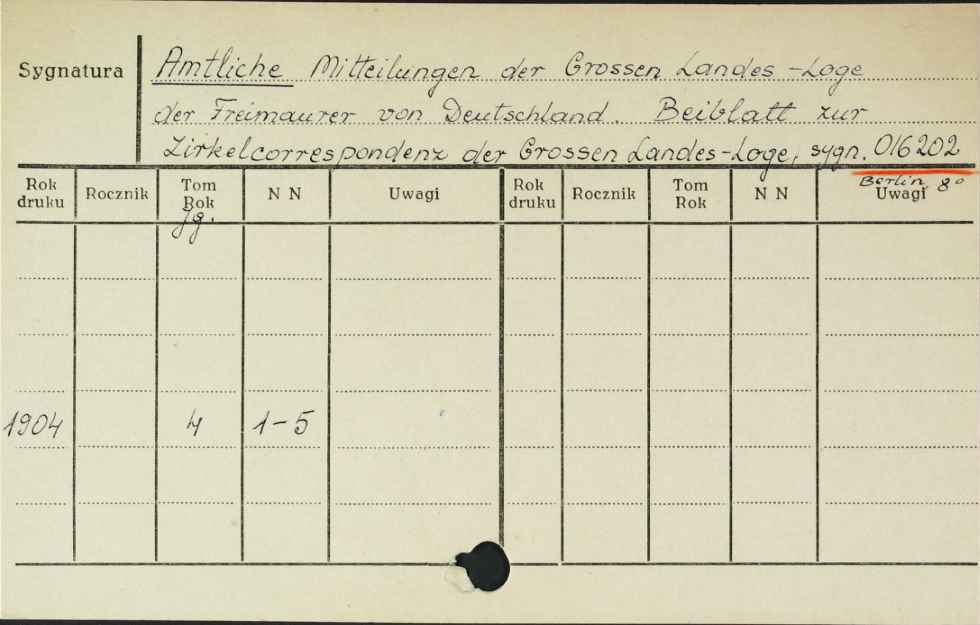 Sygnatura
Amtliche Mitteilungen der Grossen Landes-Loge
der Freimaurer von Deutschland. Beiblatt zur
Zirkelcorrespondenz der Grossen Landes-Loge, sygn. 016202
Berlin, 8°
Rok druku Rocznik Tom Rok N N Uwagi Rok druku Rocznik Tom Rok N N Uwagi
Jg.
1904 4 1-5